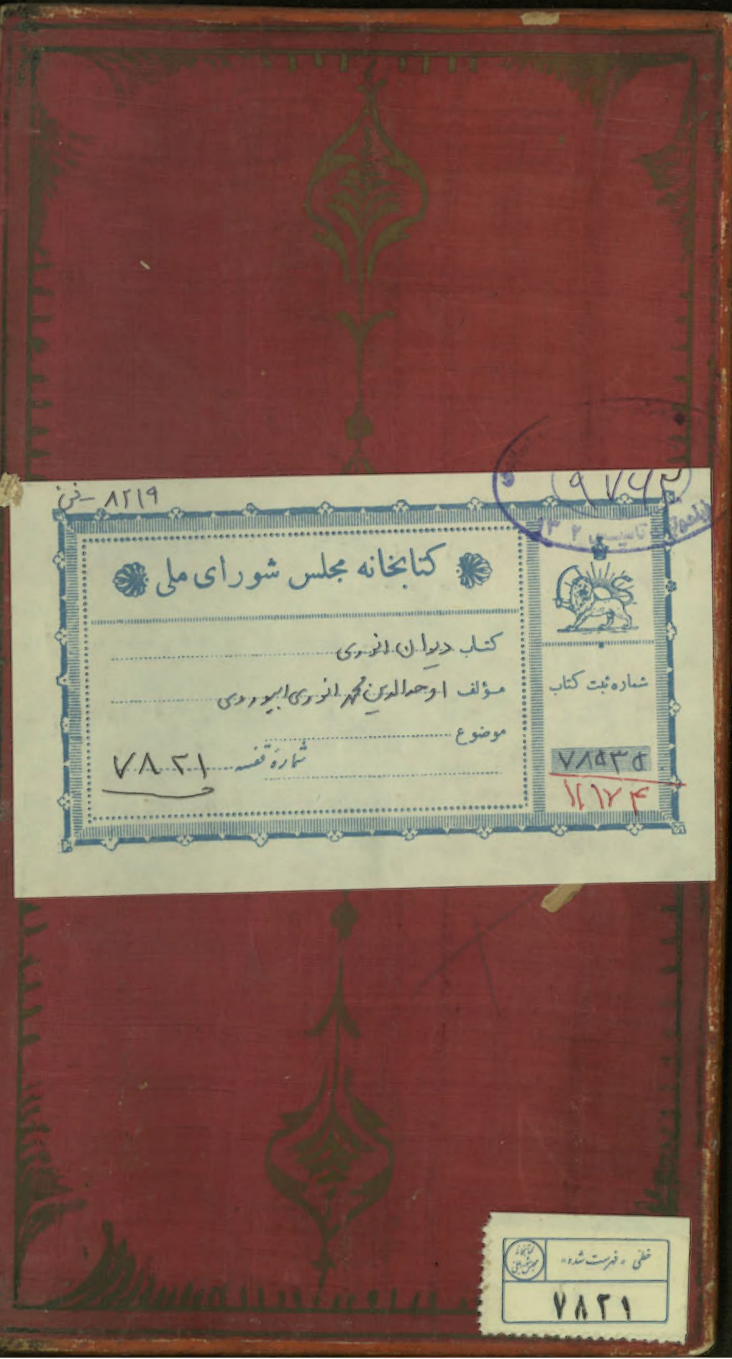 ۸۲۱۹ - فن
۹۷۶۳
تاسیس ۱۳۰۲
کتابخانه مجلس شورای ملی
کتاب دیوان انوری
مؤلف اوحدالدین محمد انوری ابیوردی
موضوع
شماره قفسه ۷۸۲۱
شماره ثبت کتاب
۷۸۵۳۵
خطی « فهرست شده »
۷۸۲۱